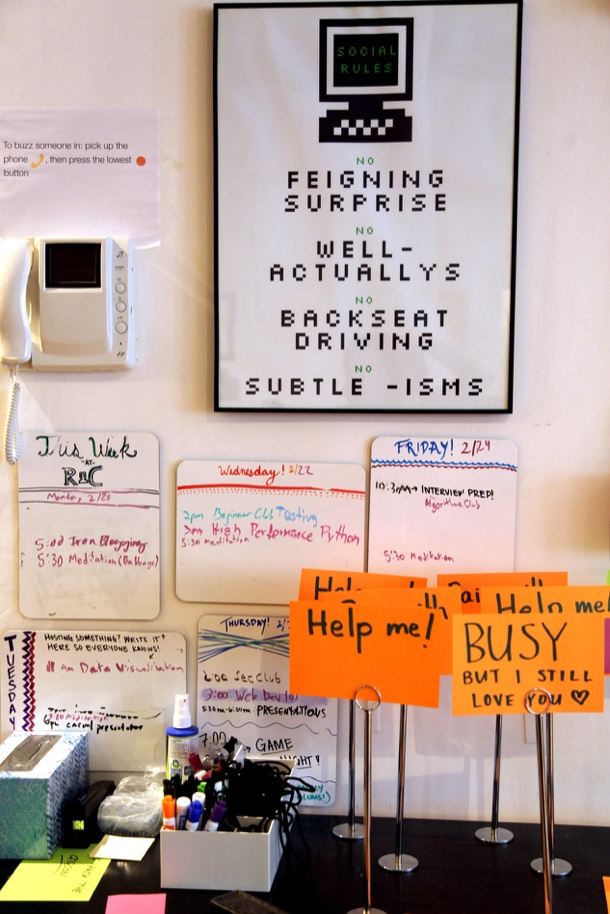 SOCIAL
RULES
NO
FEIGNING
SURPRISE
NO
WELL-
ACTUALLYS
NO
BACKSEAT
DRIVING
NO
SUBTLE -ISMS
To buzz someone in: pick up the
phone , then press the lowest
button
This Week
-AT-
RC
Monday 2/20
5:00 Iron Blogging
5:30 Meditation
Wednesday! 2/22
2pm Beginner Club Testing
3pm High Performance Python
5:30 Meditation
FRIDAY! 2/24
10:30AM → INTERVIEW PREP!
Algorithms Club
5:30 Meditation
TUESDAY
HOSTING SOMETHING? WRITE IT!
HERE SO EVERYONE KNOWS!
11 AM Data Visualization
5:30 Meditation
6pm casual presentation
THURSDAY!
2:00 Sec Club
3:00 Web Dev
5:30pm-6:30pm PRESENTATIONS
7:00
GAME
NIGHT!
Help me!
Help me!
BUSY
BUT I STILL
LOVE YOU ♡